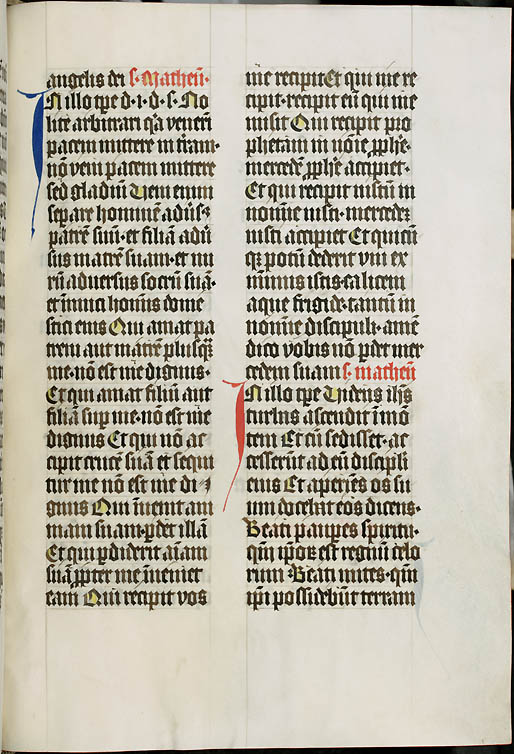 angelis dei s. Matheū.
In illo tꝑe d. i. d. s. No
lite arbitrari q̄a venerī
pacem mittere in tr̄am.
nō veni pacem mittere
sed gladiū Ueni enim
sepāre hominē adūsꝫ
patrē suū. et filiā adū
sus matrē suam. et nu
rū adversus socrū suā.
et inīci hoīnis dome
stici eius Qui amat pa
trem aut matrē plusqꝫ̄
me. nō est me dignus.
Et qui amat filiū aut
filiā suꝑ me. nō est me
dignus Et qui nō ac
cipit crucē suā et sequi
tur me nō est me di
gnus Qui īvenit ani
mam suam. ꝑdet illā
Et qui ꝑdiderit aīam
suā ꝓpter me īveniet
eam Qui recipit vos
me recipit Et qui me re
cipit. recipit eū qui me
misit Qui recipit pro
phetam in nōīe ꝓphe.
mercedē ꝓphē accipiet.
Et qui recipit iustū in
nomīe iusti. mercedeꝫ
iusti accipiet Et quicū
qꝫ potū dederit uni ex
minimis istis. calicem
aque frigide. tantū in
nomīe discipuli. amē
dico vobis nō ꝑdet mer
cedem suam s. matheū
In illo tꝑe Uidens ih̄s
turbas ascendit ī mō
tem Et cū sedisset. ac
cesserūt ad eū discipli
eius Et aperiēs os su
um docebat eos dicens.
Beati pauꝑes spiritu.
qm̄ ip̄oꝝ est regnū celo
rum Beati mites. qm̄
ip̄i possidebūt terram